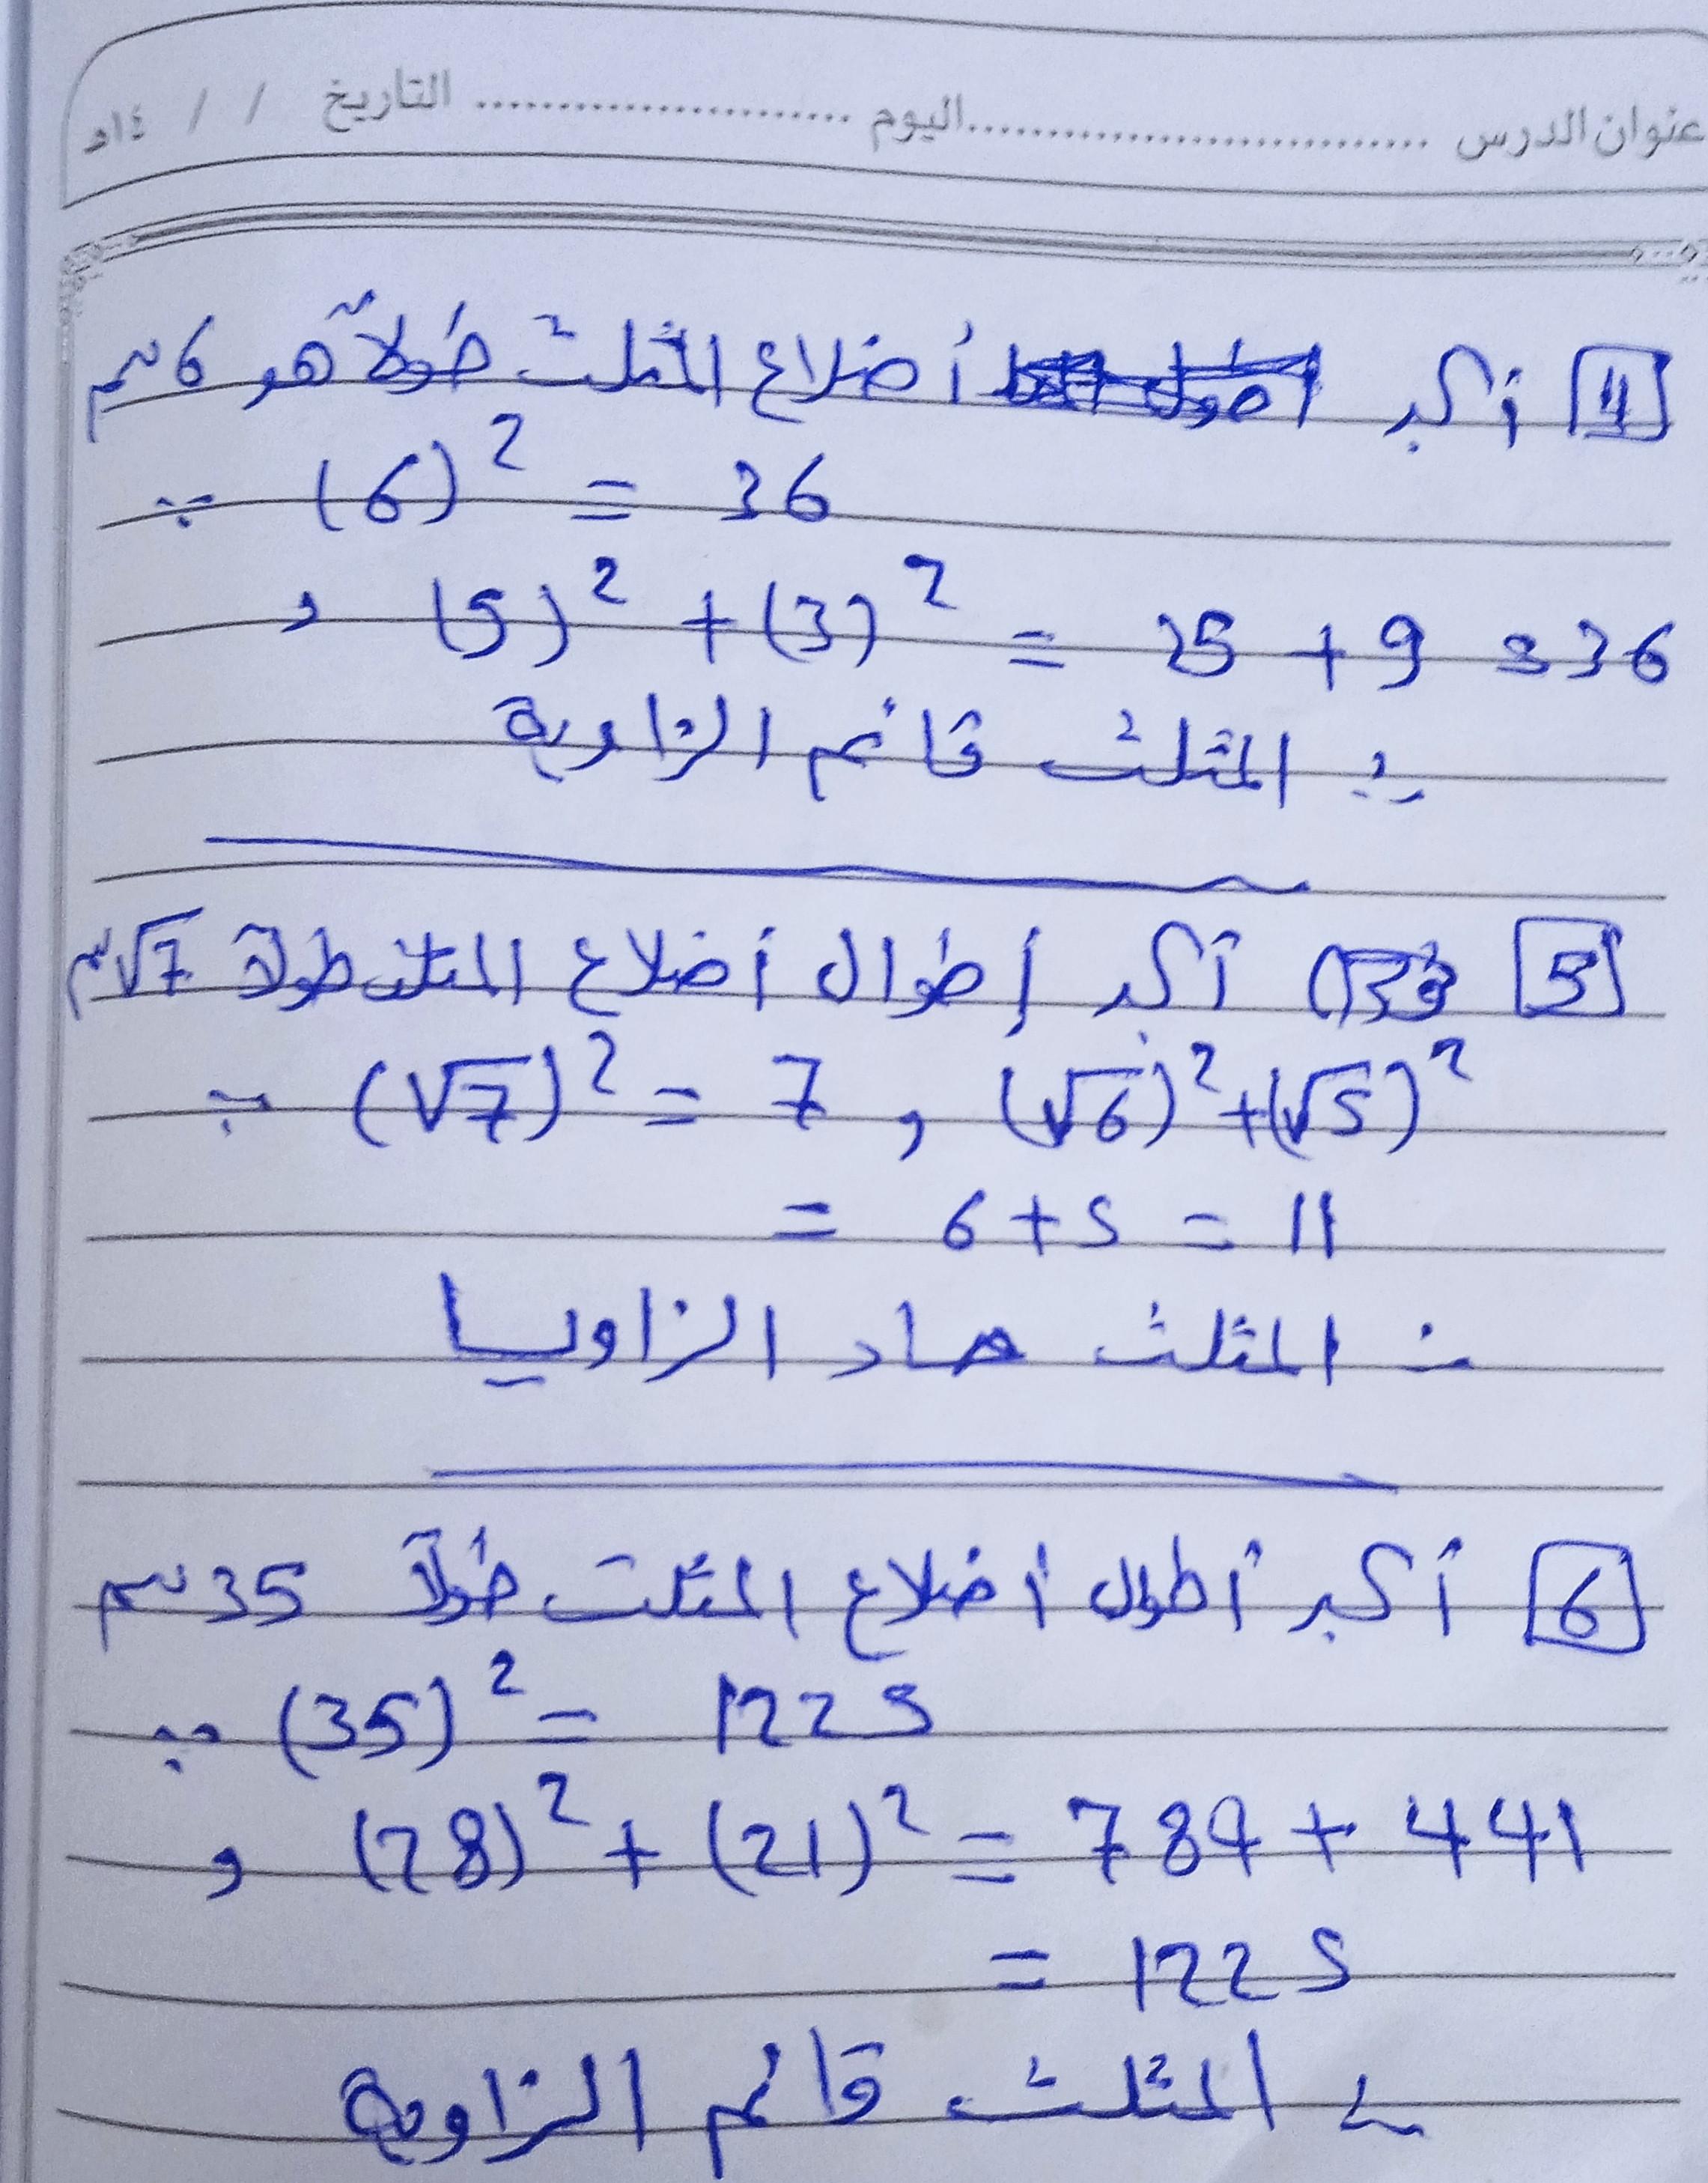 عنوان الدرس ........................ اليوم .................... التاريخ / / ١٤هـ
4 أكبر أضلاع المثلث طولاً هو 6 سم
∵ (6)² = 36
و (5)² + (3)² = 25 + 9 = 36
∴ المثلث قائم الزاوية
5 أكبر أطوال أضلاع المثلث طولاً √7 سم
∵ (√7)² = 7 , (√6)² + (√5)²
= 6 + 5 = 11
∴ المثلث حاد الزاويا
6 أكبر أطوال أضلاع المثلث طولاً 35 سم
∵ (35)² = 1225
و (28)² + (21)² = 784 + 441
= 1225
∴ المثلث قائم الزاوية